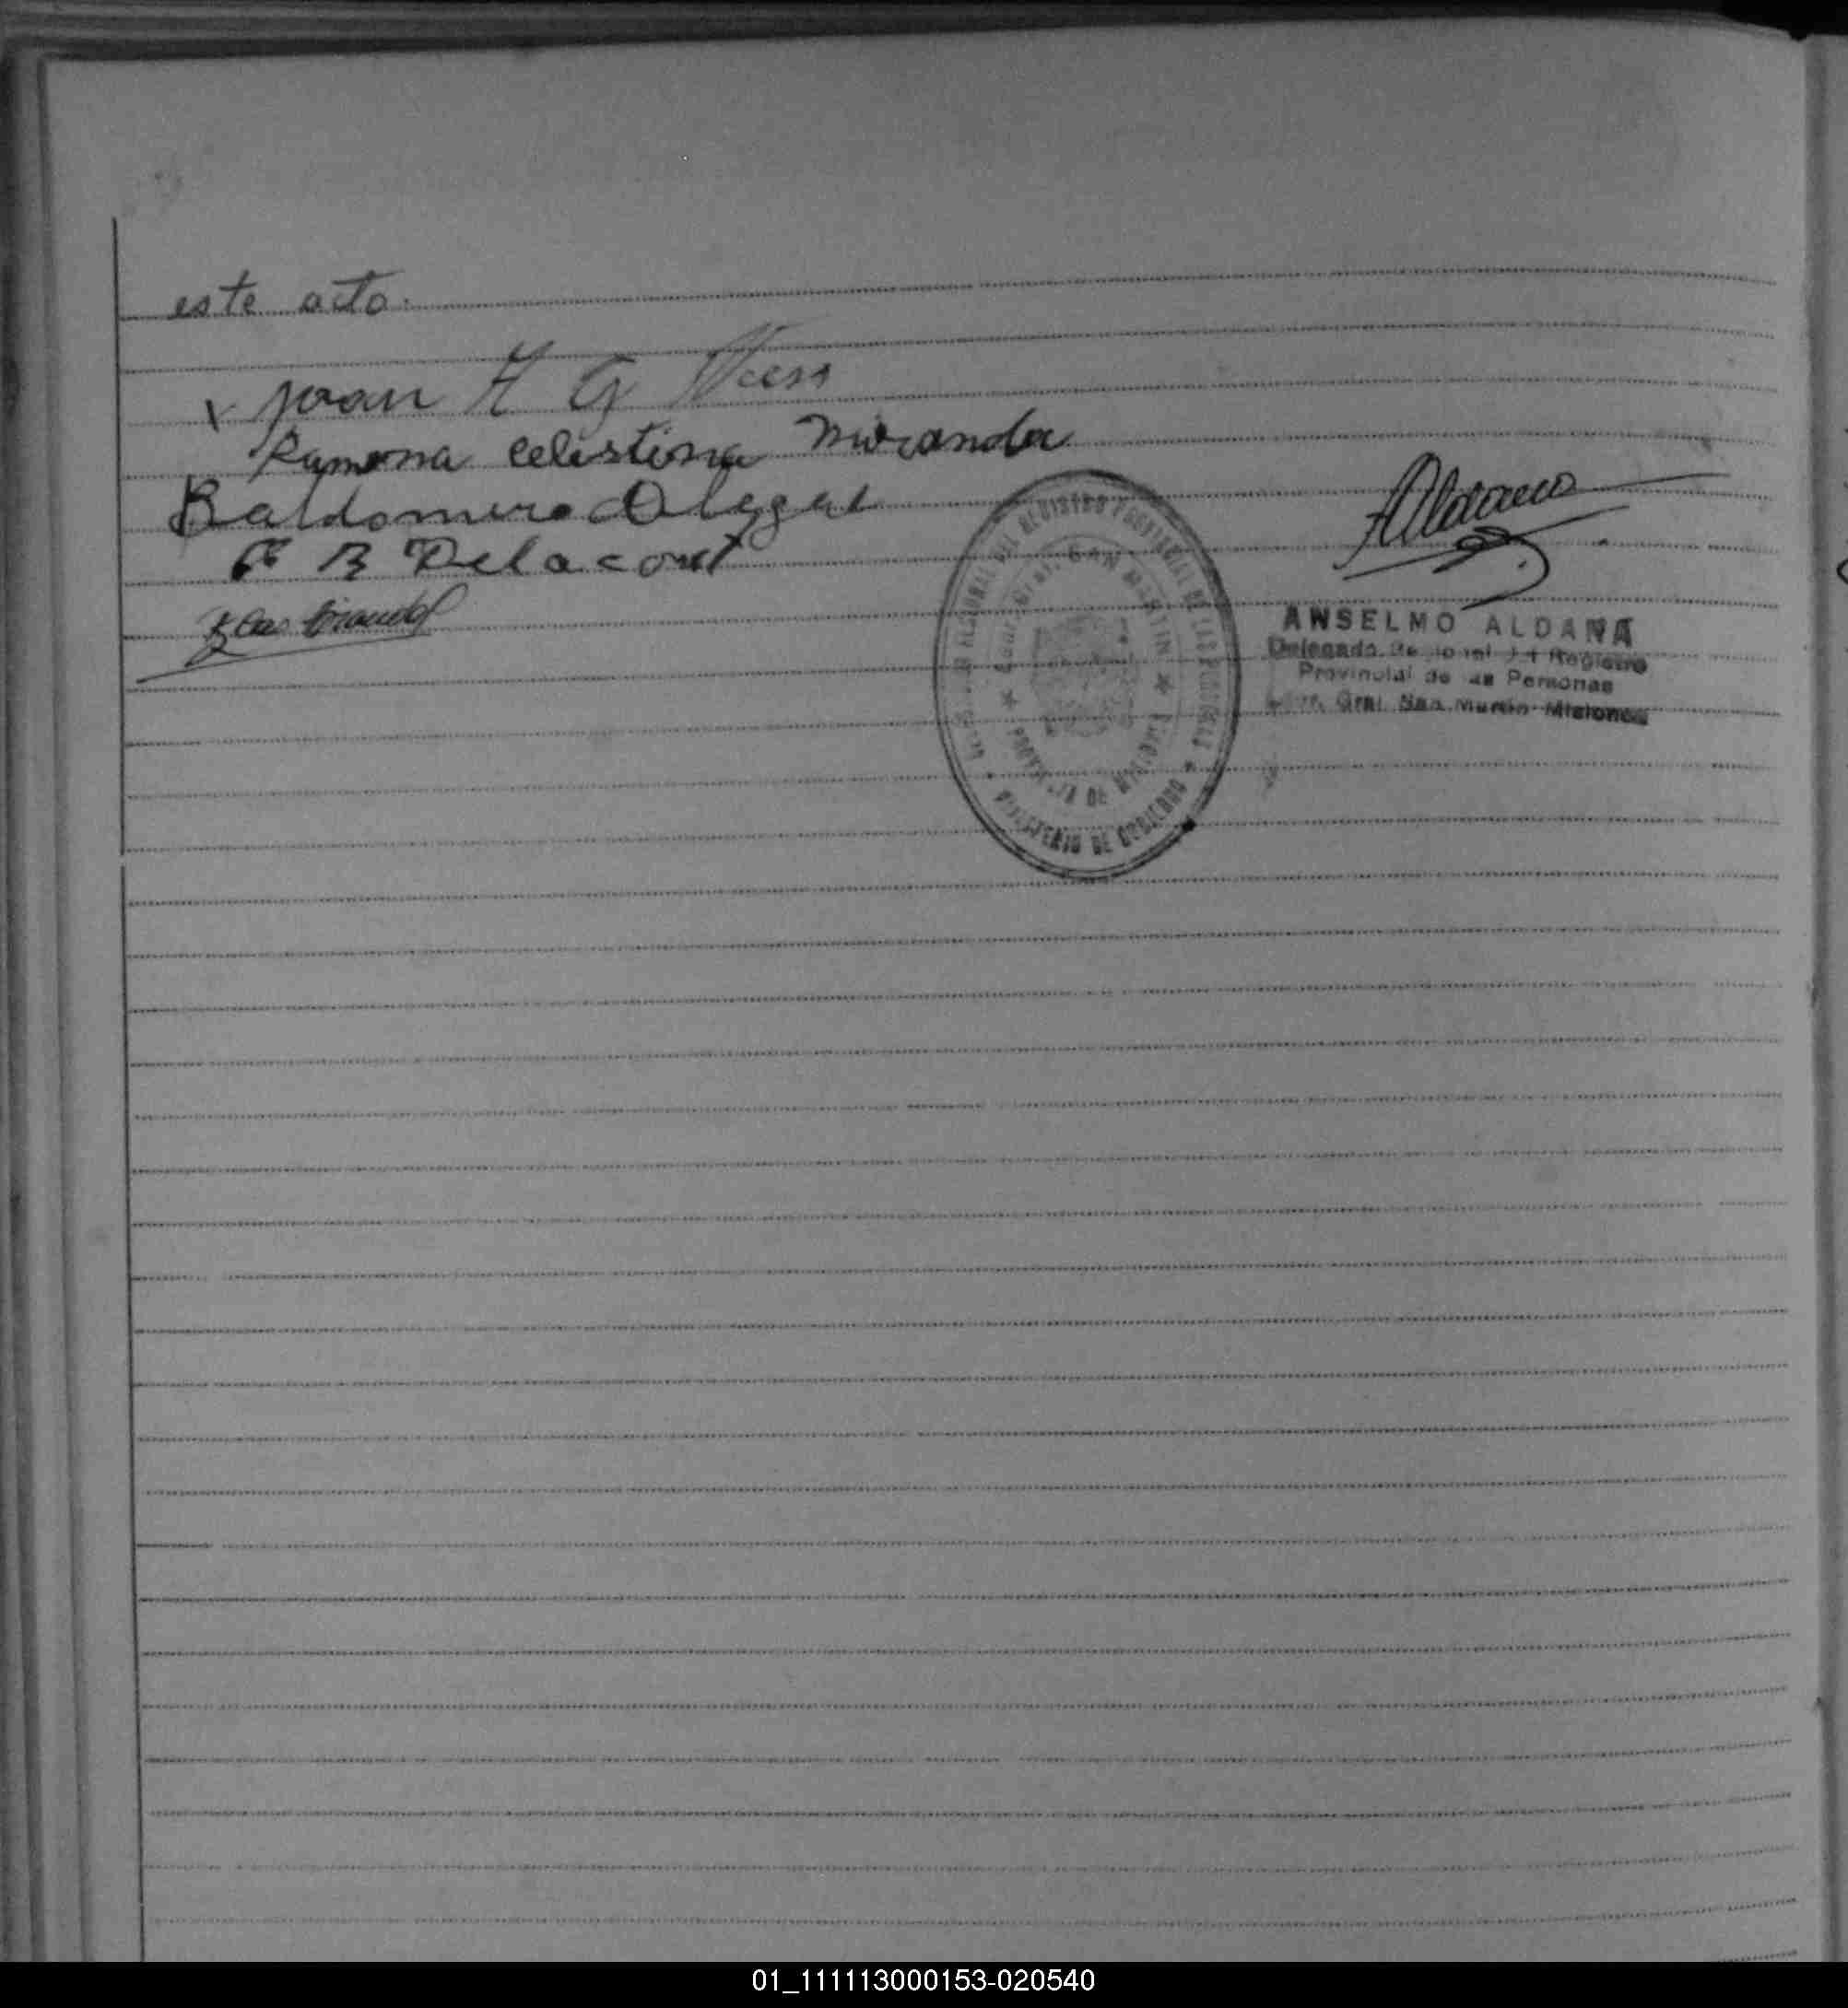 este acto.
x Juan H G
Ramona Celestina Miranda
Baldomero
E B Delacourt
Blas Miranda
Aldana
ANSELMO ALDANA
Delegado Regional del Registro
Provincial de las Personas
Gral. San Martín Misiones
REGIONAL DEL REGISTRO PROVINCIAL DE LAS PERSONAS
MINISTERIO DE GOBIERNO
Gral. SAN MARTIN
PROVINCIA DE MISIONES
01_111113000153-020540